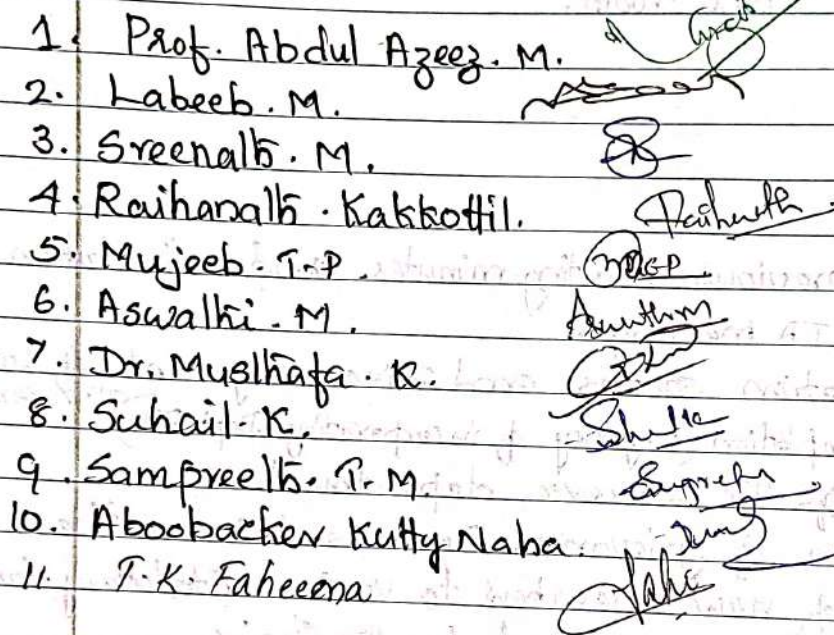 1. Prof. Abdul Azeez. M.
2. Labeeb. M.
3. Sreenath. M.
4. Raihanath. Kakkottil. Raihanath
5. Mujeeb. T.P.
6. Aswathi. M. Aswathi
7. Dr. Musthafa. K.
8. Suhail. K.
9. Sampreeth. T. M.
10. Aboobacker Kutty Naha.
11. T. K. Faheeena